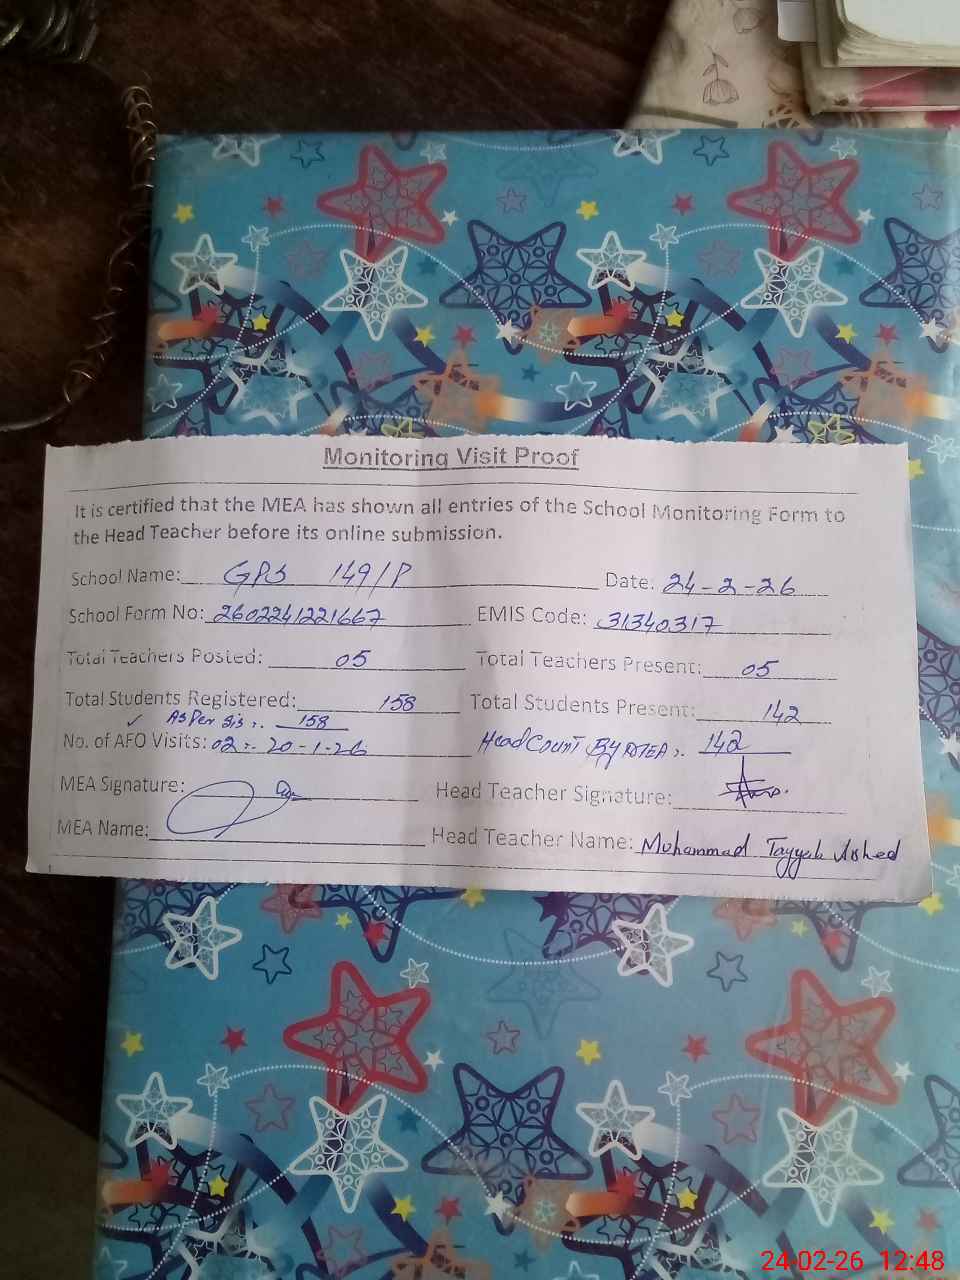 Monitoring Visit Proof
It is certified that the MEA has shown all entries of the School Monitoring Form to
the Head Teacher before its online submission.
School Name: GPS 149/P Date: 24-2-26
School Form No: 2602241221667 EMIS Code: 31340317
Total Teachers Posted: 05 Total Teachers Present: 05
Total Students Registered: 158 Total Students Present: 142
✓ As Per Sis:. 158
No. of AFO Visits: 02:- 20-1-26 Head Count By MEA:. 142
MEA Signature: Head Teacher Signature:
MEA Name: Head Teacher Name: Muhammad Tayyab Arshed
24-02-26 12:48